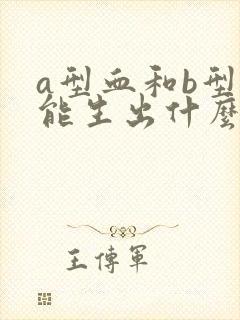 a型血和b型
能生出什麼
王傳軍